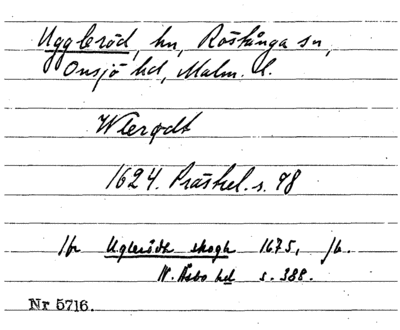 Uggleröd, hn, Röstånga sn,
Onsjö hd, Malm. L.
Wlerødt
1624. Prästrel. s. 98
Jfr Uglerödh skogh 1675, jb.
N. Åsbo hd s. 388.
Nr 5716.